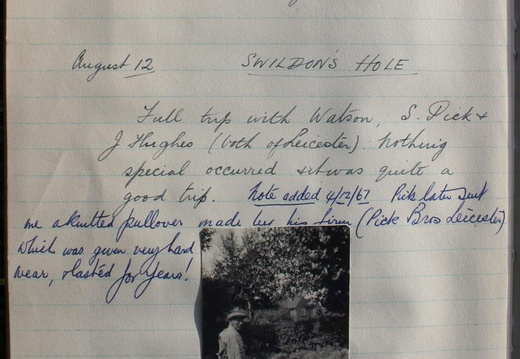 August 12 SWILDON'S HOLE
Full trip with Watson, S. Pick &
J Hughes (both of Leicester). Nothing
special occurred & it was quite a
good trip. Note added 4/12/67 Pick later sent
me a knitted pullover made by his firm (Pick Bros Leicester)
which was given very hard
wear, & lasted for years!